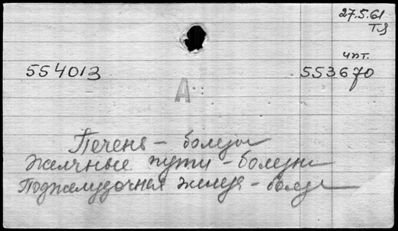 27.5.61
чит.
554013 553670
А
Печень – болезни
Желчные пути – болезни
Поджелудочная железа – болезни